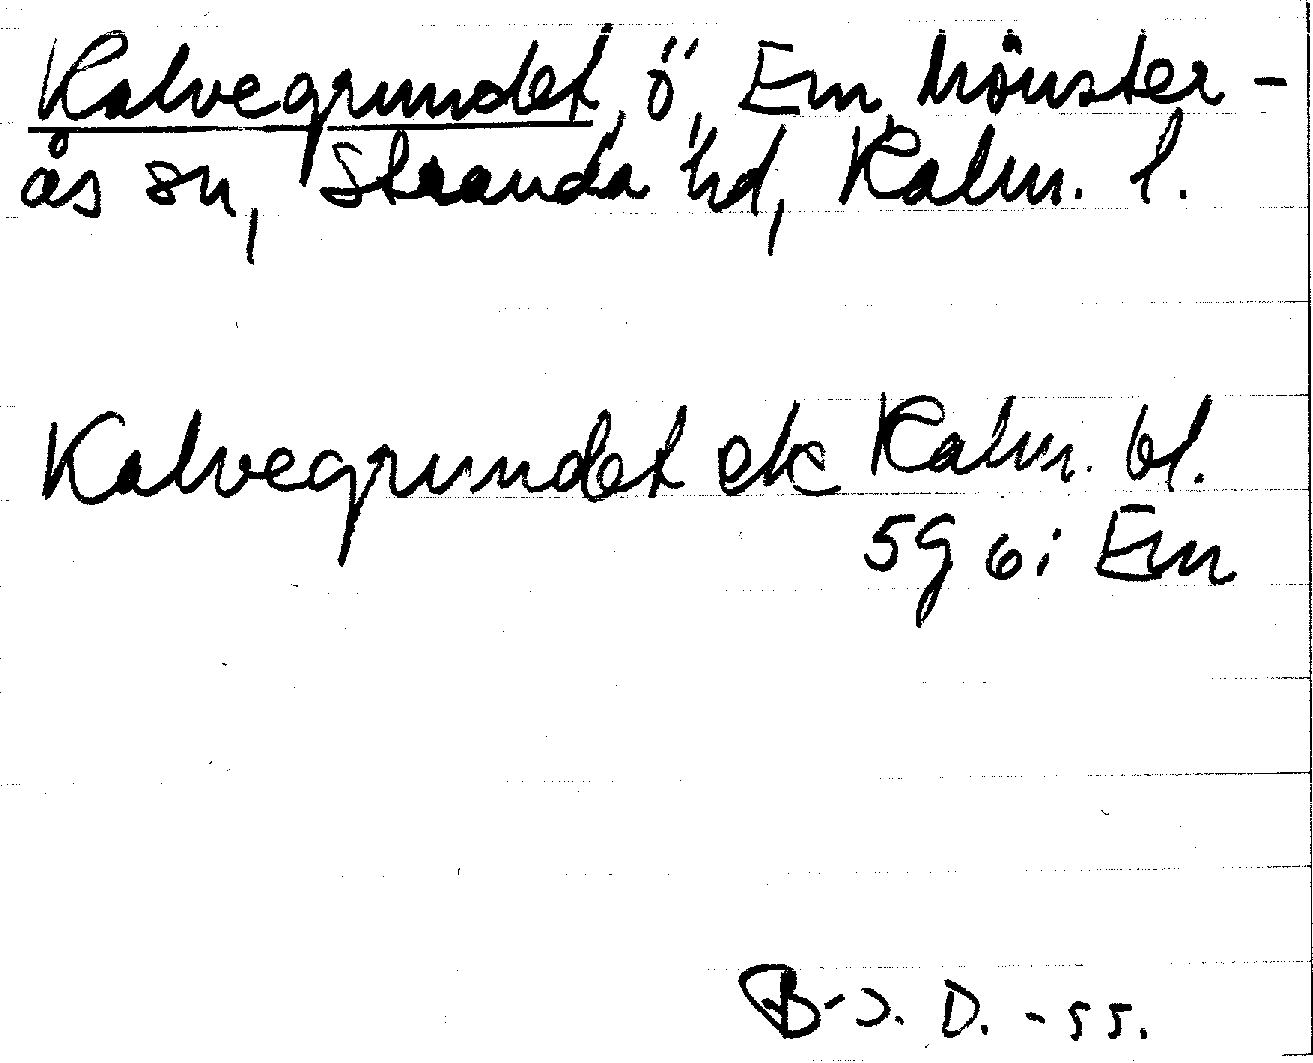 Kalvegrundet, ö, Em, Mönster-
ås sn, Stranda hd, Kalm. l.
Kalvegrundet ek Kalm. bl.
59 ö i Em
B-J. D. -55.